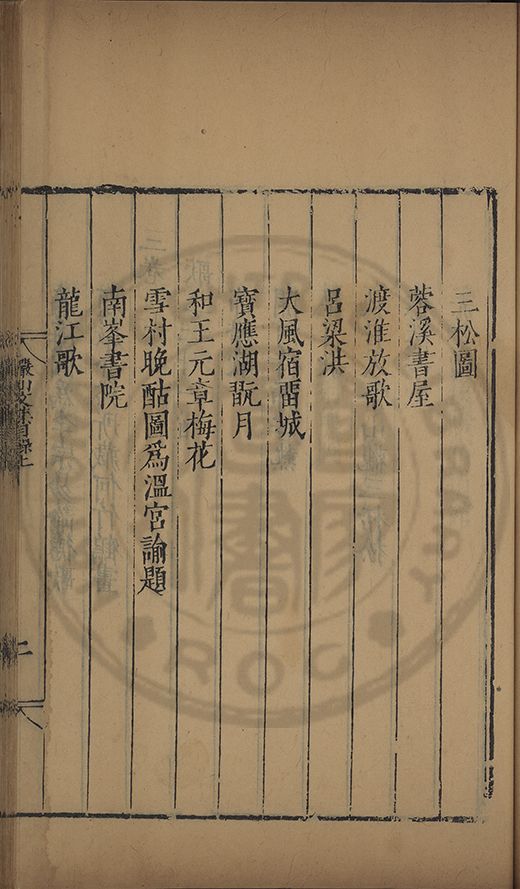 三松圖
蓉溪書屋
渡淮放歌
呂梁洪
大風宿畱城
寶應湖翫月
和王元章梅花
雪村晚酤圖爲溫宮諭題
南峯書院
龍江歌
二